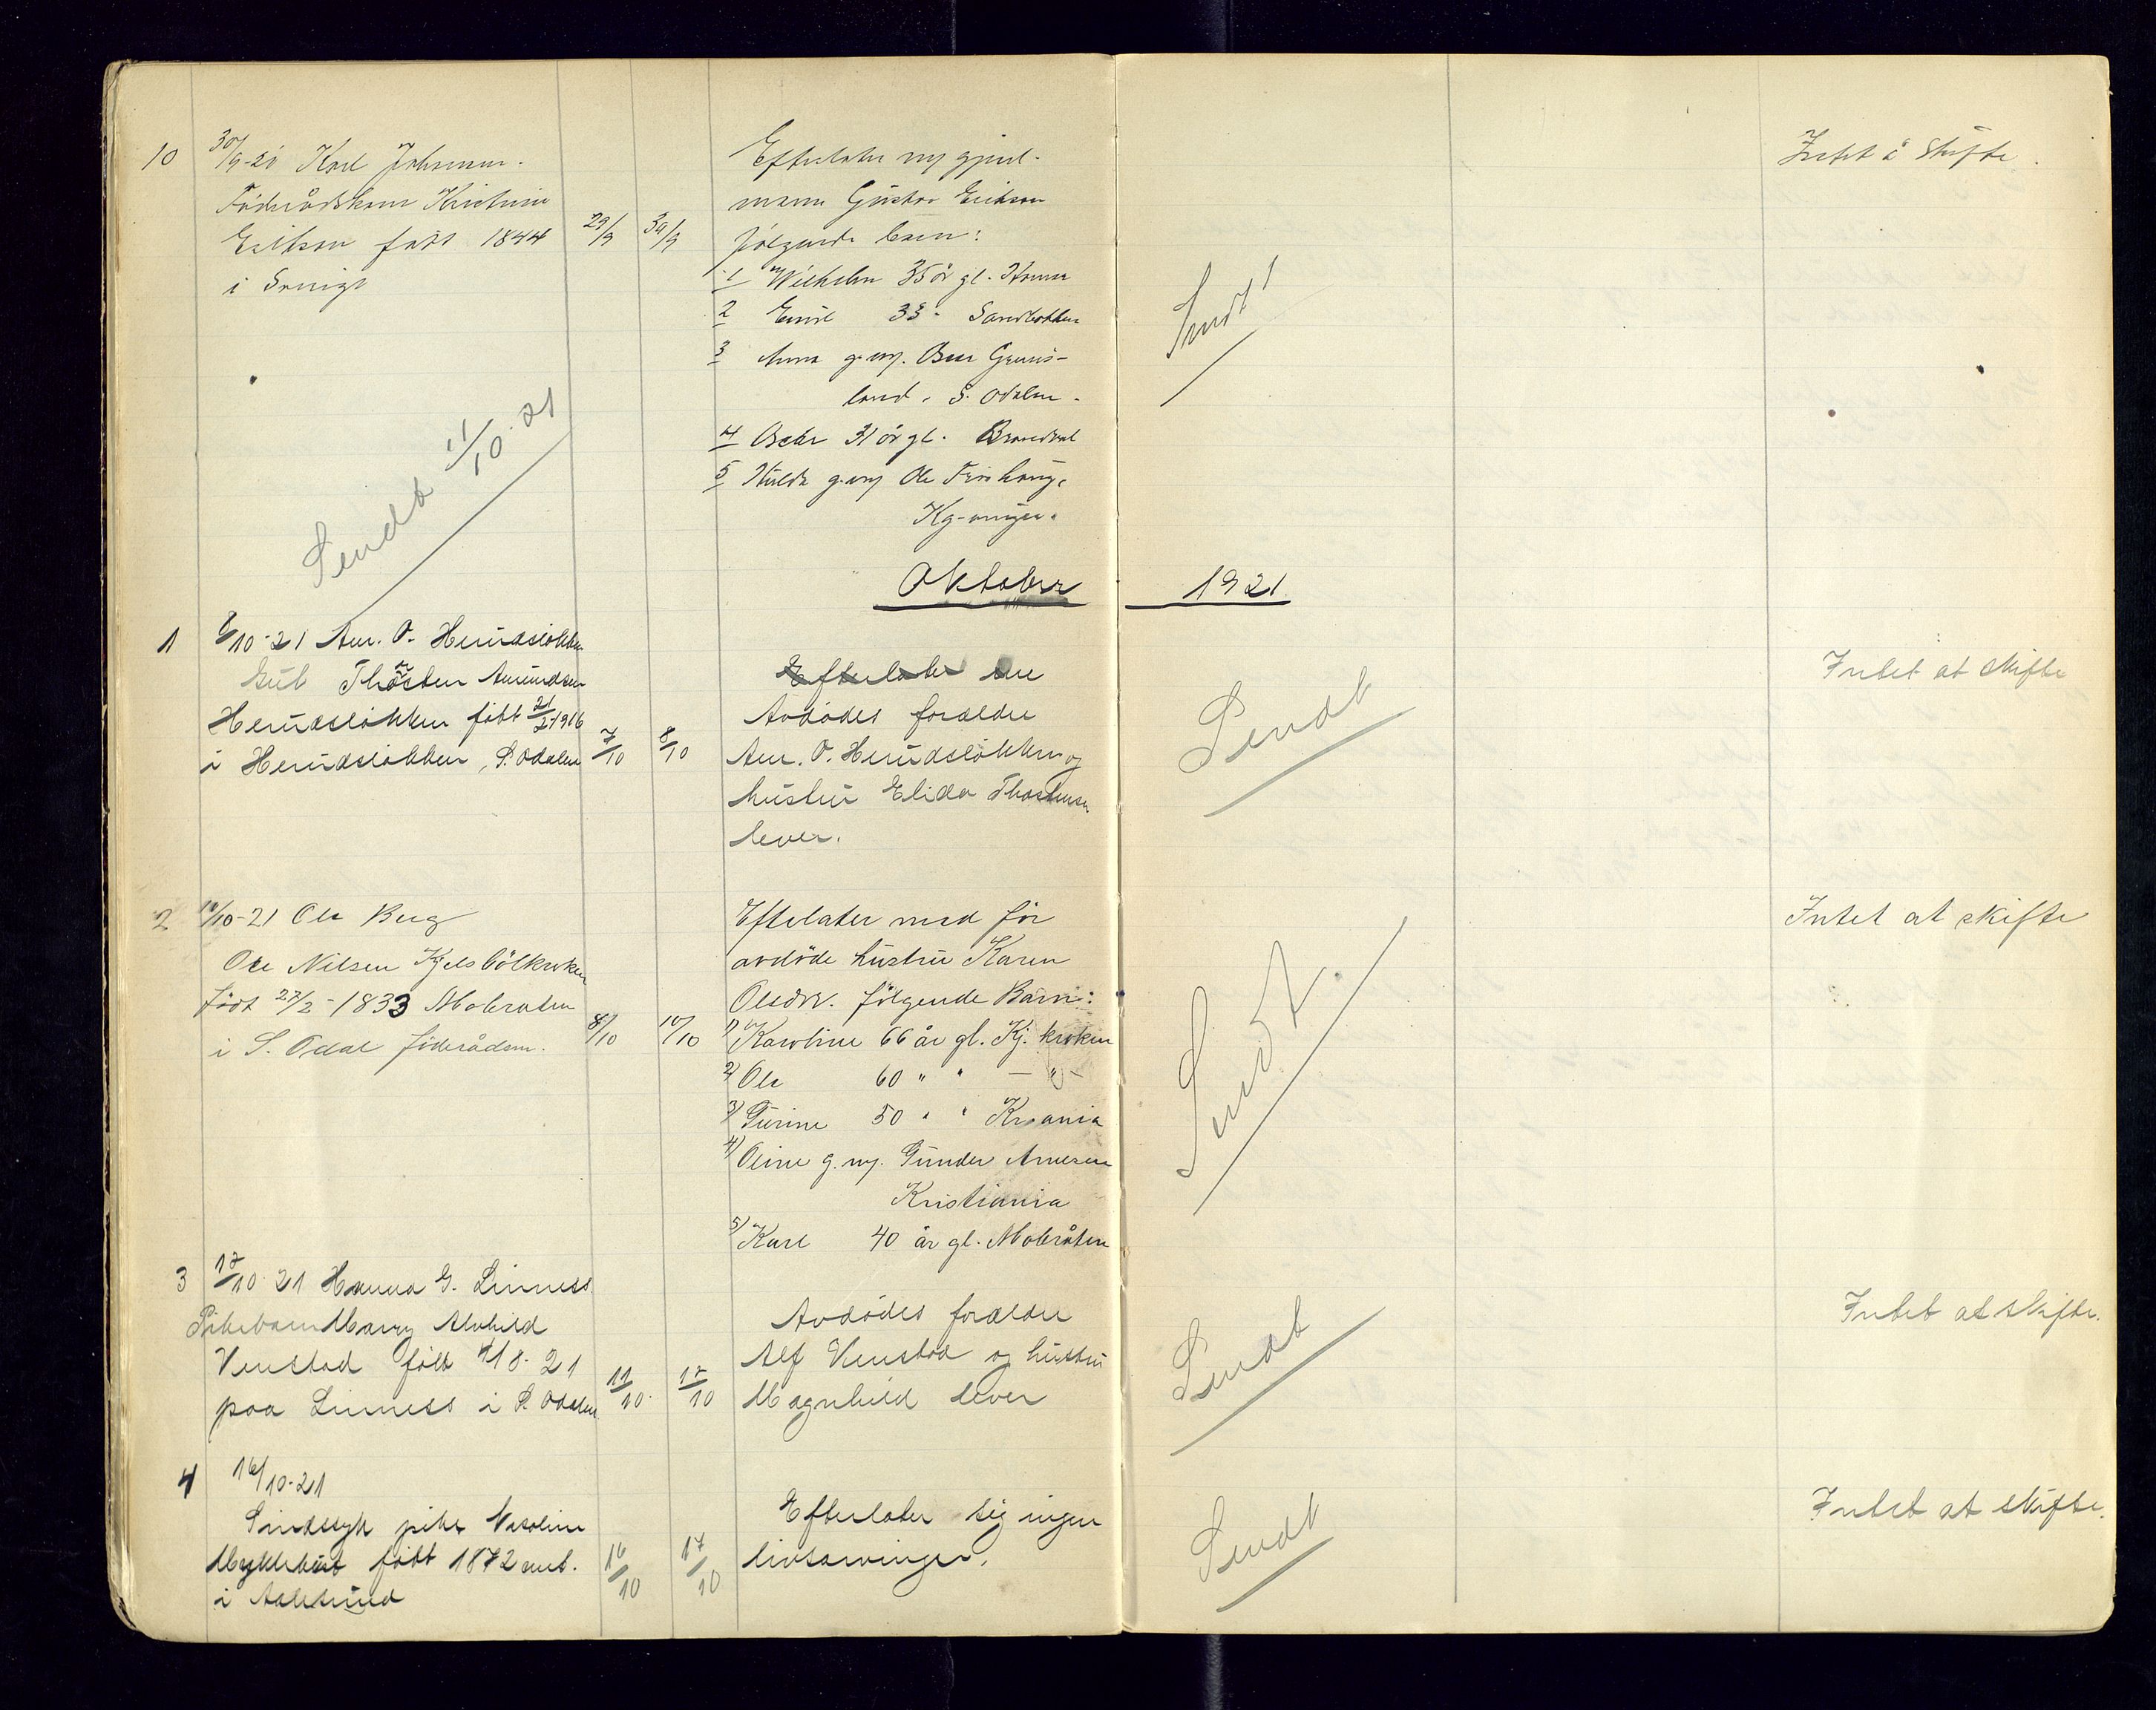 10
30/9-21 Karl Johansen.
Föderådskone Kristine
Erikson født 1844
i Sverige
29/9
30/9
Efterlater m/ gjenl.
mann Gustav Erikson
følgende barn:
1 Wilhelm 35 år gl.
2 Emil 33 - Sandbakken
3 Anna g. m/. Oscar
land, S. Odalen.
4 Oscar 31 år gl. Brandval
5 Hulda g. m/ Ole
Kg-vinger.
Intet å skifte.
Sendt!
Sendt 11/10-21
Oktober 1921
1
8/10-21 Am. O. Herudsløkken
Gut Thorsten Amundsen
Herudsløkken født 21/2 1916
i Herudsløkken, S. Odalen
7/10
8/10
Efterlater sine
Avdødes forældre
Am. O. Herudsløkken og
hustru Elida Thostensen
lever.
Sendt
Intet at skifte
2
10/10-21 Ole Berg
Ole Nilsen Kjelsbölkroken
född 27/2-1833 Mobraten
i S. Odal föderådsm.
8/10
10/10
Efterlater med för
avdöde hustru Karen
Olsdtr. fölgende Barn:
1) Karoline 66 år gl. Kj. kroken
2) Ole 60 " " — " —
3) Gurine 50 " " Krania
4) Oline g. m/. Gunder Arnesen
Kristiania
5) Karl 40 år gl. Mobråten
Sendt.
Intet at skifte
3
17/10 21 Hanna G. Linness.
Pikebarn Mary Alvhild
Venstad født 4/8-21
paa Linness i S. Odalen
11/10.
17/10
Avdødes forældre
Alf Venstad og hustru
Magnhild lever
Sendt
Intet at skifte.
4
16/10-21
Sindssyk pike Nasoline
Myklebust født 1872 ant.
i Aalesund
16/10
17/10
Efterlater sig ingen
livsarvinger.
Sendt
Intet at skifte.